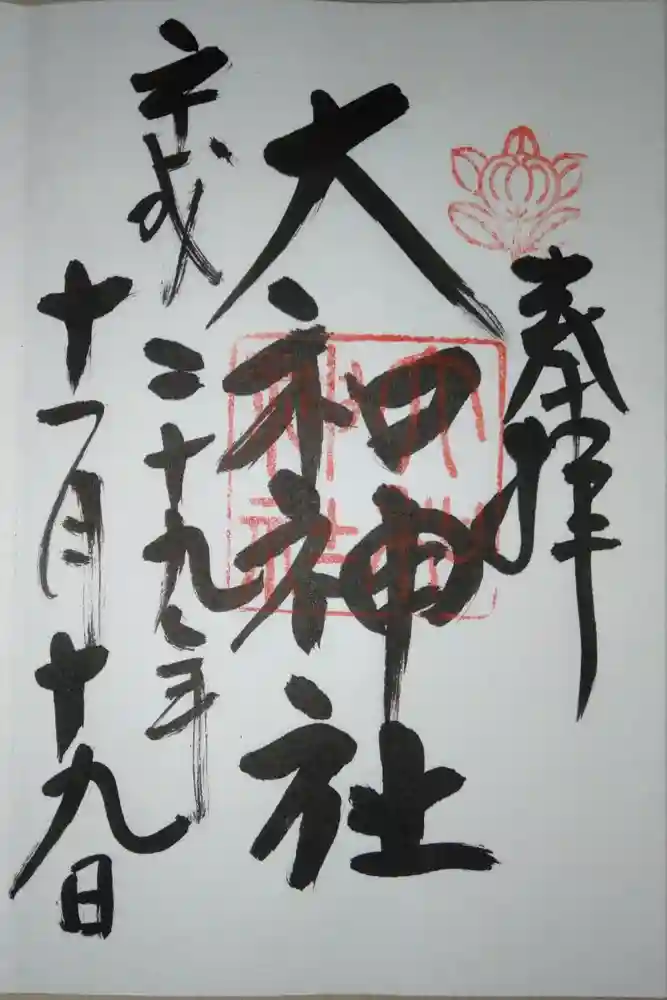 奉拝
大和神社
平成二十九年
十一月十九日
大和神社